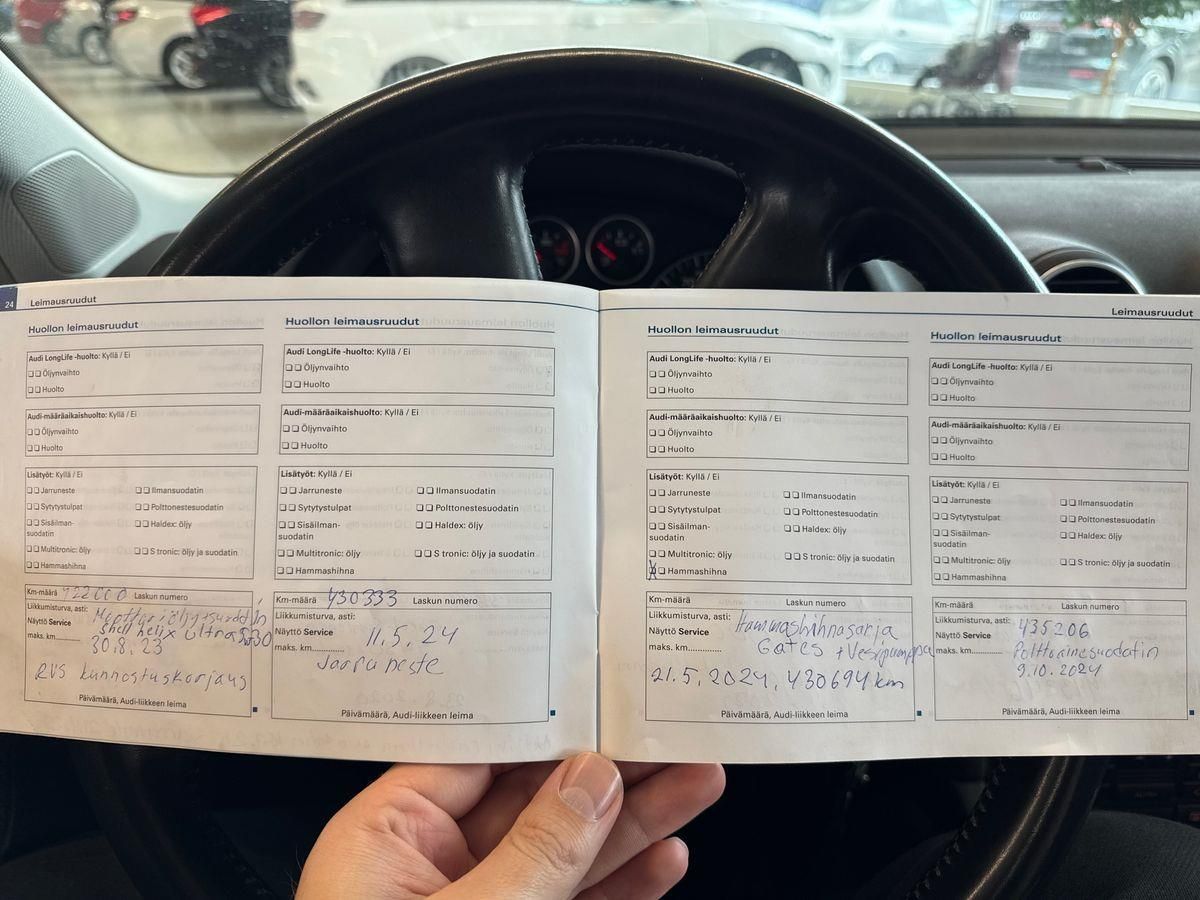 24 Leimausruudut
Huollon leimausruudut
Audi LongLife -huolto: Kyllä / Ei
Öljynvaihto
Huolto
Audi-määräaikaishuolto: Kyllä / Ei
Öljynvaihto
Huolto
Lisätyöt: Kyllä / Ei
Jarruneste
Ilmansuodatin
Sytytystulpat
Polttonestesuodatin
Sisäilman-
suodatin
Haldex: öljy
Multitronic: öljy
S tronic: öljy ja suodatin
Hammashihna
Km-määrä 422000 Laskun numero
Liikkumisturva, asti: Moottoriöljy+suodatin
Näyttö Service Shell helix ultra 5w30
maks. km 30.8.23
RVS kunnostuskorjaus
Päivämäärä, Audi-liikkeen leima
Huollon leimausruudut
Audi LongLife -huolto: Kyllä / Ei
Öljynvaihto
Huolto
Audi-määräaikaishuolto: Kyllä / Ei
Öljynvaihto
Huolto
Lisätyöt: Kyllä / Ei
Jarruneste
Ilmansuodatin
Sytytystulpat
Polttonestesuodatin
Sisäilman-
suodatin
Haldex: öljy
Multitronic: öljy
S tronic: öljy ja suodatin
Hammashihna
Km-määrä 430333 Laskun numero
Liikkumisturva, asti:
Näyttö Service 11.5.24
maks. km
Jarruneste
Päivämäärä, Audi-liikkeen leima
Leimausruudut
Huollon leimausruudut
Audi LongLife -huolto: Kyllä / Ei
Öljynvaihto
Huolto
Audi-määräaikaishuolto: Kyllä / Ei
Öljynvaihto
Huolto
Lisätyöt: Kyllä / Ei
Jarruneste
Ilmansuodatin
Sytytystulpat
Polttonestesuodatin
Sisäilman-
suodatin
Haldex: öljy
Multitronic: öljy
S tronic: öljy ja suodatin
X Hammashihna
Km-määrä Laskun numero
Liikkumisturva, asti: Hammashihnasarja
Näyttö Service Gates + Vesipumppu
maks. km
21.5.2024, 430694 km
Päivämäärä, Audi-liikkeen leima
Huollon leimausruudut
Audi LongLife -huolto: Kyllä / Ei
Öljynvaihto
Huolto
Audi-määräaikaishuolto: Kyllä / Ei
Öljynvaihto
Huolto
Lisätyöt: Kyllä / Ei
Jarruneste
Ilmansuodatin
Sytytystulpat
Polttonestesuodatin
Sisäilman-
suodatin
Haldex: öljy
Multitronic: öljy
S tronic: öljy ja suodatin
Hammashihna
Km-määrä Laskun numero
Liikkumisturva, asti: 435206
Näyttö Service Polttoainesuodatin
maks. km 9.10.2024
Päivämäärä, Audi-liikkeen leima